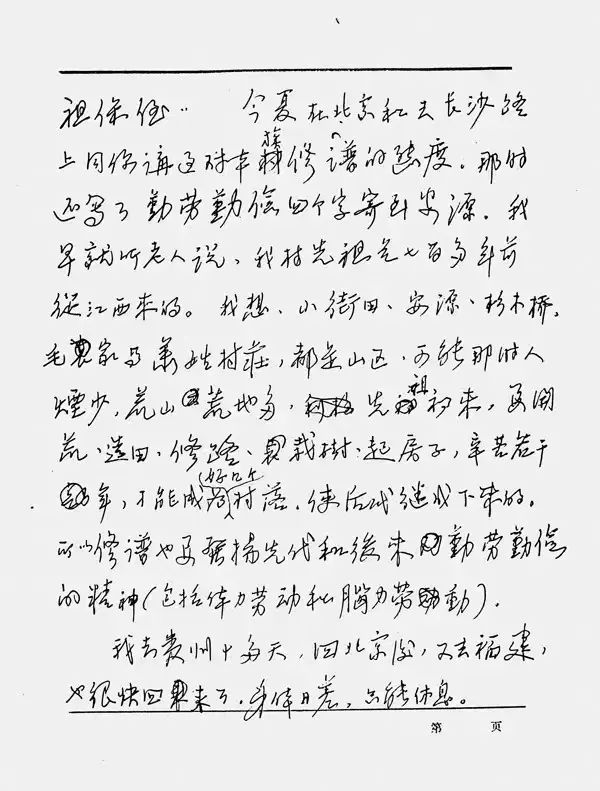 祖保侄： 今夏在北京和去长沙路
上同你讲过对本族修谱的态度。那时
还写了勤劳勤俭四个字寄到安源。我
早就听老人说、我村先祖是七百多年前
從江西来的。我想、小街田、安源、杉木桥、
毛家与萧姓村莊，都是山区、可能那时人
煙少，荒山荒地多，先祖初来，要開
荒、造田、修路、栽樹、起房子，辛苦若干
年，才能成为好几个村落。使后代继承下来的。
所以修谱也要發揚先代和後来勤劳勤俭
的精神（包括体力劳动和腦力劳動）。
我去贵州十多天，回北京后，又去福建，
也很快回来了，身体日差，只能休息。
第 页